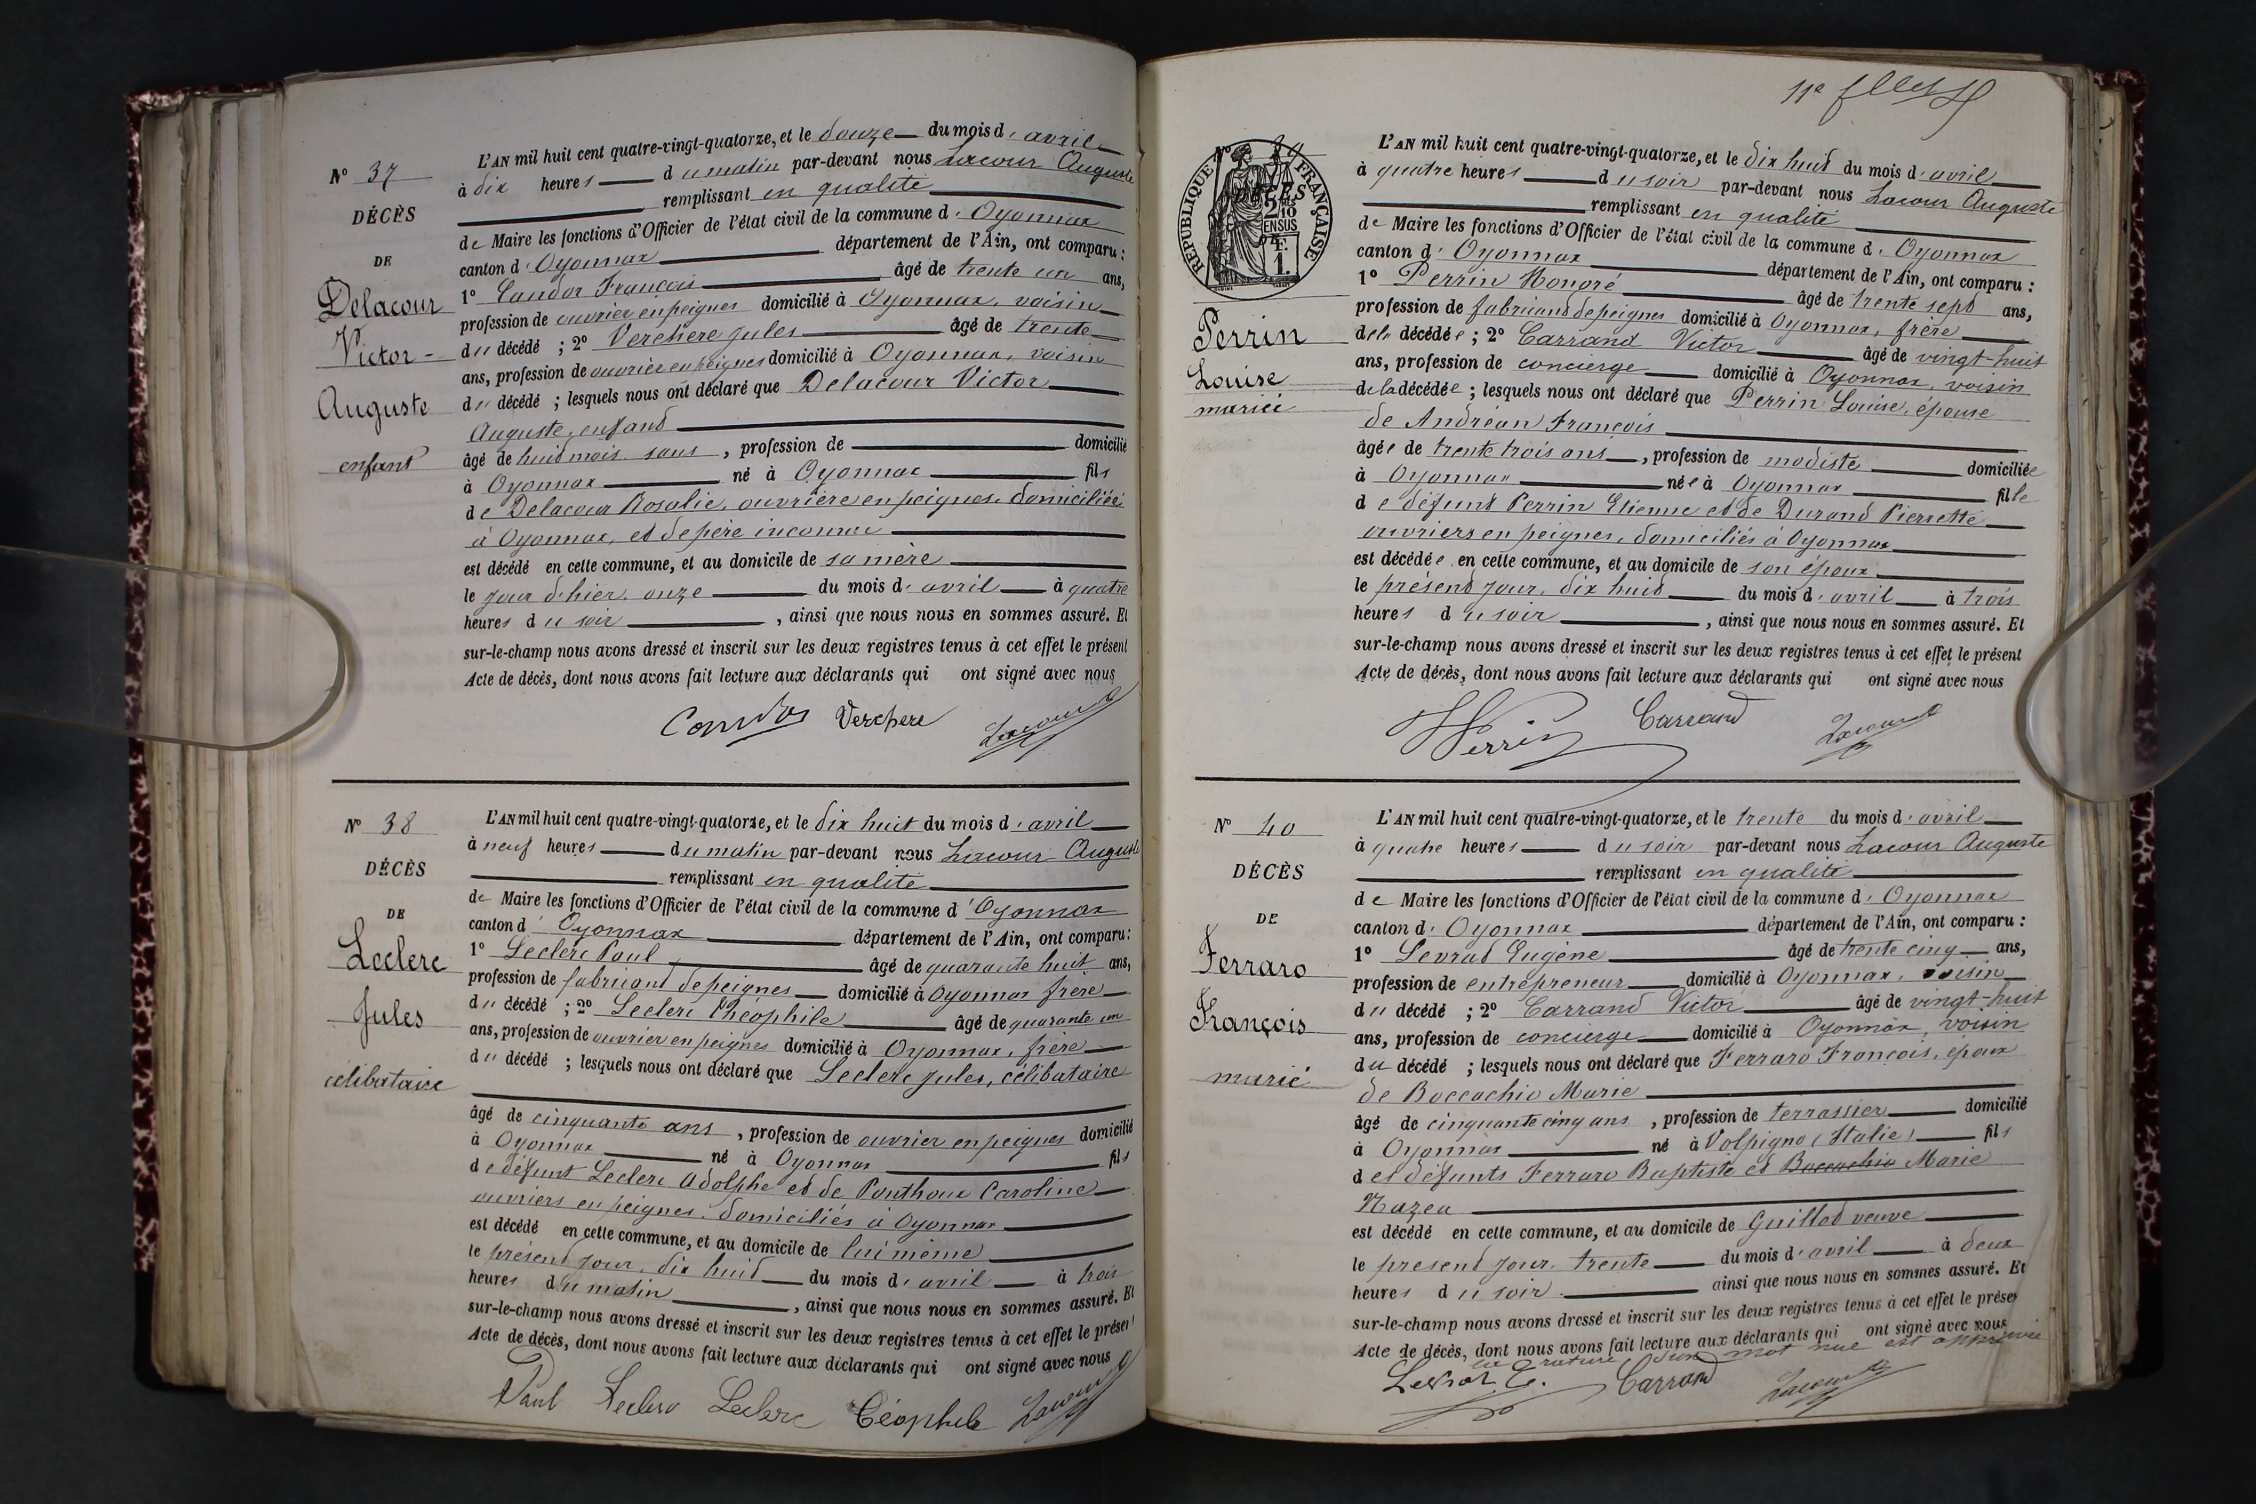 N° 37
DÉCÈS
DE
Delacour
Victor
Auguste
enfant
L'AN mil huit cent quatre-vingt-quatorze, et le douze du mois d'avril
à dix heures du matin par-devant nous Lacour Auguste
remplissant en qualité
de Maire les fonctions d'Officier de l'état civil de la commune d'Oyonnax
canton d'Oyonnax département de l'Ain, ont comparu :
1° Candor François âgé de trente un ans,
profession de ouvrier en peignes domicilié à Oyonnax, voisin
du décédé ; 2° Verchere Jules âgé de trente
ans, profession de ouvrier en peignes domicilié à Oyonnax, voisin
du décédé ; lesquels nous ont déclaré que Delacour Victor
Auguste, enfant
âgé de huit mois sans, profession de domicilié
à Oyonnax né à Oyonnax fils
de Delacour Rosalie, ouvrière en peignes, domiciliée
à Oyonnax, et de père inconnu
est décédé en cette commune, et au domicile de sa mère
le jour d'hier, onze du mois d'avril à quatre
heures du soir, ainsi que nous nous en sommes assuré. Et
sur-le-champ nous avons dressé et inscrit sur les deux registres tenus à cet effet le présent
Acte de décès, dont nous avons fait lecture aux déclarants qui ont signé avec nous
Verchere Lacour
N° 38
DÉCÈS
DE
Leclerc
Jules
célibataire
L'AN mil huit cent quatre-vingt-quatorze, et le dix huit du mois d'avril
à neuf heures du matin par-devant nous Lacour Auguste
remplissant en qualité
de Maire les fonctions d'Officier de l'état civil de la commune d'Oyonnax
canton d'Oyonnax département de l'Ain, ont comparu :
1° Leclerc Paul âgé de quarante huit ans,
profession de fabricant de peignes domicilié à Oyonnax frère
du décédé ; 2° Leclerc Théophile âgé de quarante un
ans, profession de ouvrier en peignes domicilié à Oyonnax, frère
du décédé ; lesquels nous ont déclaré que Leclerc Jules, célibataire
âgé de cinquante ans, profession de ouvrier en peignes domicilié
à Oyonnax né à Oyonnax fils
de défunt Leclerc Adolphe et de Ponthoux Caroline
ouvriers en peignes, domiciliés à Oyonnax
est décédé en cette commune, et au domicile de lui même
le présent jour, dix huit du mois d'avril à trois
heures du matin, ainsi que nous nous en sommes assuré. Et
sur-le-champ nous avons dressé et inscrit sur les deux registres tenus à cet effet le présent
Acte de décès, dont nous avons fait lecture aux déclarants qui ont signé avec nous
Paul Leclerc Leclerc Téophile Lacour
11e
RÉPUBLIQUE FRANÇAISE
2/10
EN SUS
1 F.
Perrin
Louise
mariée
L'AN mil huit cent quatre-vingt-quatorze, et le dix huit du mois d'avril
à quatre heures du soir par-devant nous Lacour Auguste
remplissant en qualité
de Maire les fonctions d'Officier de l'état civil de la commune d'Oyonnax
canton d'Oyonnax département de l'Ain, ont comparu :
1° Perrin Honoré âgé de trente sept ans,
profession de fabricant de peignes domicilié à Oyonnax, frère
de la décédée ; 2° Carrand Victor âgé de vingt-huit
ans, profession de concierge domicilié à Oyonnax, voisin
de la décédée ; lesquels nous ont déclaré que Perrin Louise, épouse
de Andréan François
âgée de trente trois ans, profession de modiste domiciliée
à Oyonnax née à Oyonnax fille
de défunt Perrin Etienne et de Durand Pierrette
ouvriers en peignes, domiciliés à Oyonnax
est décédée en cette commune, et au domicile de son époux
le présent jour, dix huit du mois d'avril à trois
heures du soir, ainsi que nous nous en sommes assuré. Et
sur-le-champ nous avons dressé et inscrit sur les deux registres tenus à cet effet le présent
Acte de décès, dont nous avons fait lecture aux déclarants qui ont signé avec nous
H Perrin Carrand Lacour
N° 40
DÉCÈS
DE
Ferraro
François
marié
L'AN mil huit cent quatre-vingt-quatorze, et le trente du mois d'avril
à quatre heures du soir par-devant nous Lacour Auguste
remplissant en qualité
de Maire les fonctions d'Officier de l'état civil de la commune d'Oyonnax
canton d'Oyonnax département de l'Ain, ont comparu :
1° Levrat Eugène âgé de trente cinq ans,
profession de entrepreneur domicilié à Oyonnax, voisin
du décédé ; 2° Carrand Victor âgé de vingt-huit
ans, profession de concierge domicilié à Oyonnax, voisin
du décédé ; lesquels nous ont déclaré que Ferraro François, époux
de Boccachio Marie
âgé de cinquante cinq ans, profession de terrassier domicilié
à Oyonnax né à Volpigno (Italie) fils
des défunts Ferraro Baptiste et Boccachio Marie
Nazea
est décédé en cette commune, et au domicile de Guillod veuve
le présent jour, trente du mois d'avril à deux
heures du soir, ainsi que nous nous en sommes assuré. Et
sur-le-champ nous avons dressé et inscrit sur les deux registres tenus à cet effet le présent
Acte de décès, dont nous avons fait lecture aux déclarants qui ont signé avec nous
la rature d'un mot nul est approuvée
Levrat E. Carrand Lacour